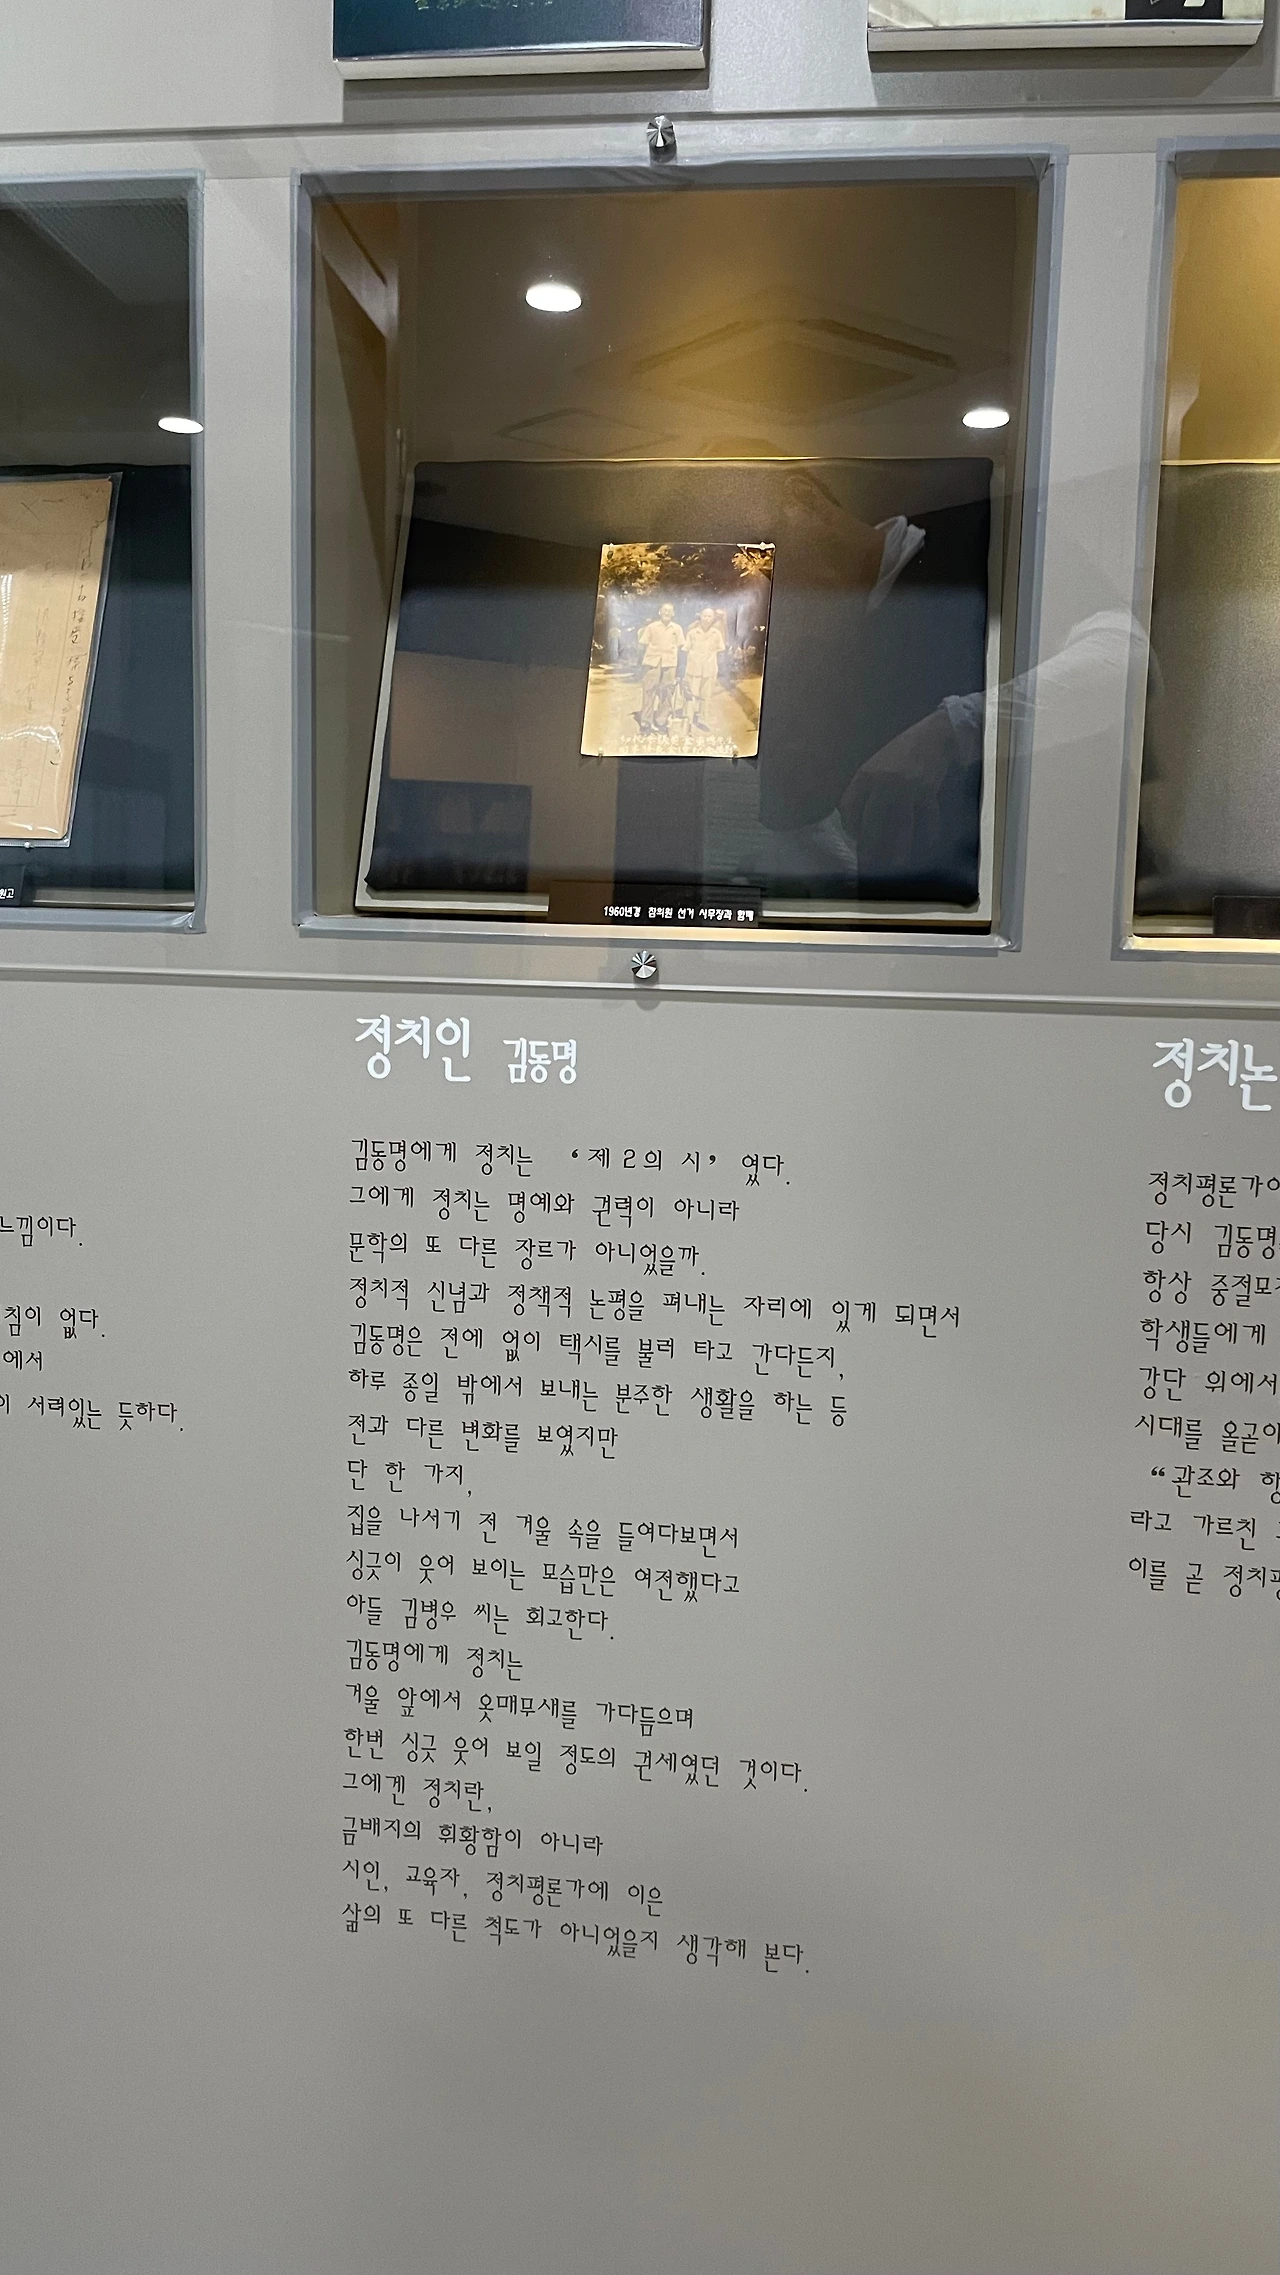 원고
1960년경 참의원 선거 사무장과 함께
느낌이다.
침이 없다.
에서
이 서려있는 듯하다.
정치인 김동명
김동명에게 정치는 ‘제2의 시’ 였다.
그에게 정치는 명예와 권력이 아니라
문학의 또 다른 장르가 아니었을까.
정치적 신념과 정책적 논평을 펴내는 자리에 있게 되면서
김동명은 전에 없이 택시를 불러 타고 간다든지,
하루 종일 밖에서 보내는 분주한 생활을 하는 등
전과 다른 변화를 보였지만
단 한 가지,
집을 나서기 전 거울 속을 들여다보면서
싱긋이 웃어 보이는 모습만은 여전했다고
아들 김병우 씨는 회고한다.
김동명에게 정치는
거울 앞에서 옷매무새를 가다듬으며
한번 싱긋 웃어 보일 정도의 권세였던 것이다.
그에겐 정치란,
금배지의 휘황함이 아니라
시인, 교육자, 정치평론가에 이은
삶의 또 다른 척도가 아니었을지 생각해 본다.
정치논
정치평론가이
당시 김동명
항상 중절모
학생들에게
강단 위에서
시대를 올곧이
“관조와
라고 가르친
이를 곧 정치